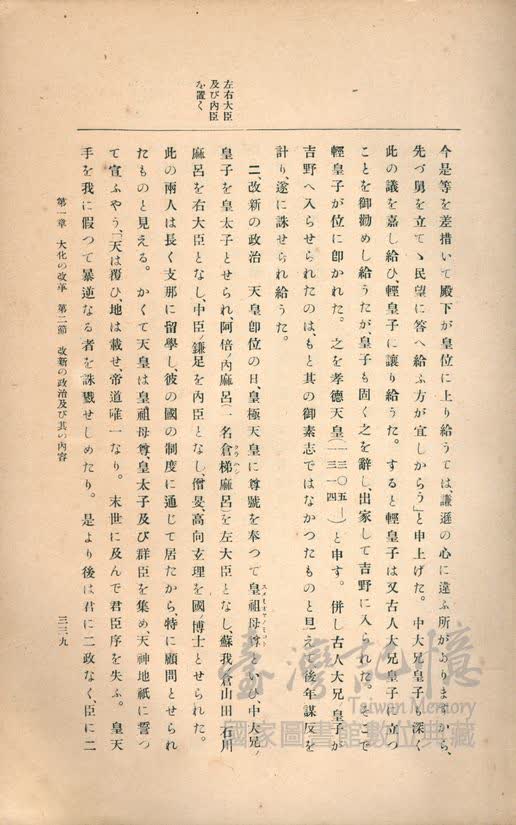 左右大臣
及び內臣
を置く
今是等を差措いて殿下が皇位に上り給うては、謙遜の心に違ふ所がありますから、
先づ舅を立てゝ民望に答へ給ふ方が宜しからう」と申上げた。中大兄皇子も深く
此の議を嘉し給ひ、輕皇子に讓り給うた。すると輕皇子は又古人大兄皇子に立つ
ことを御勸めし給うたが、皇子も固く之を辭し出家して吉野に入られた。そこで
輕皇子が位に卽かれた。之を孝德天皇(一三〇五—一三一四)と申す。併し古人大兄ノ皇子が
吉野へ入らせられたのは、もと其の御素志ではなかつたものと見えて後年謀反を
計り、遂に誅せられ給うた。
二、改新の政治 天皇卽位の日、皇極天皇に尊號を奉つて皇祖母尊といひ中大兄ノ
皇子を皇太子とせられ、阿倍ノ內麻呂(一名倉梯麻呂)を左大臣となし、蘇我ノ倉山田石川
麻呂を右大臣となし、中臣ノ鎌足を內臣となし、僧旻、高向玄理を國ノ博士とせられた。
此の兩人は長く支那に留學し、彼の國の制度に通じて居たから、特に顧問とせられ
たものと見える。かくて天皇は皇祖母尊皇太子及び群臣を集め、天神地祇に誓つ
て宣ふやう、「天は覆ひ、地は載せ、帝道唯一なり。末世に及んで君臣序を失ふ。皇天
手を我に假つて暴逆なる者を誅戮せしめたり。是より後は君に二政なく、臣に二
第一章 大化の改革 第二節 改新の政治及び其の內容
三三九
臺灣記憶
Taiwan Memory
國家圖書館數位典藏